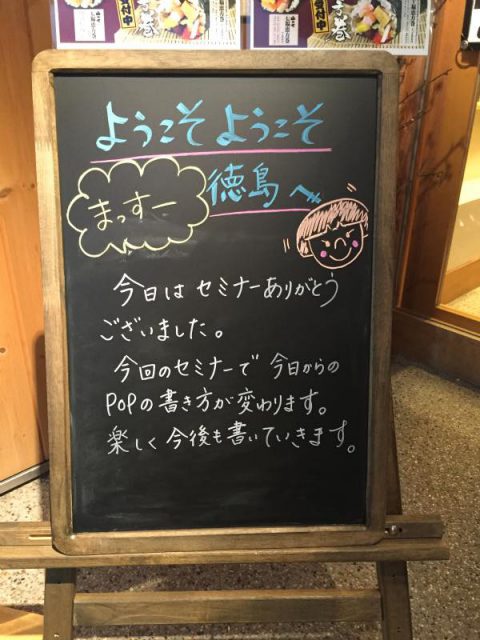 ようこそ ようこそ
徳島へ
まっすー
今日は セミナーありがとう
ございました。
今回のセミナーで 今日からの
POPの書き方が変わります。
楽しく今後も書いていきます。